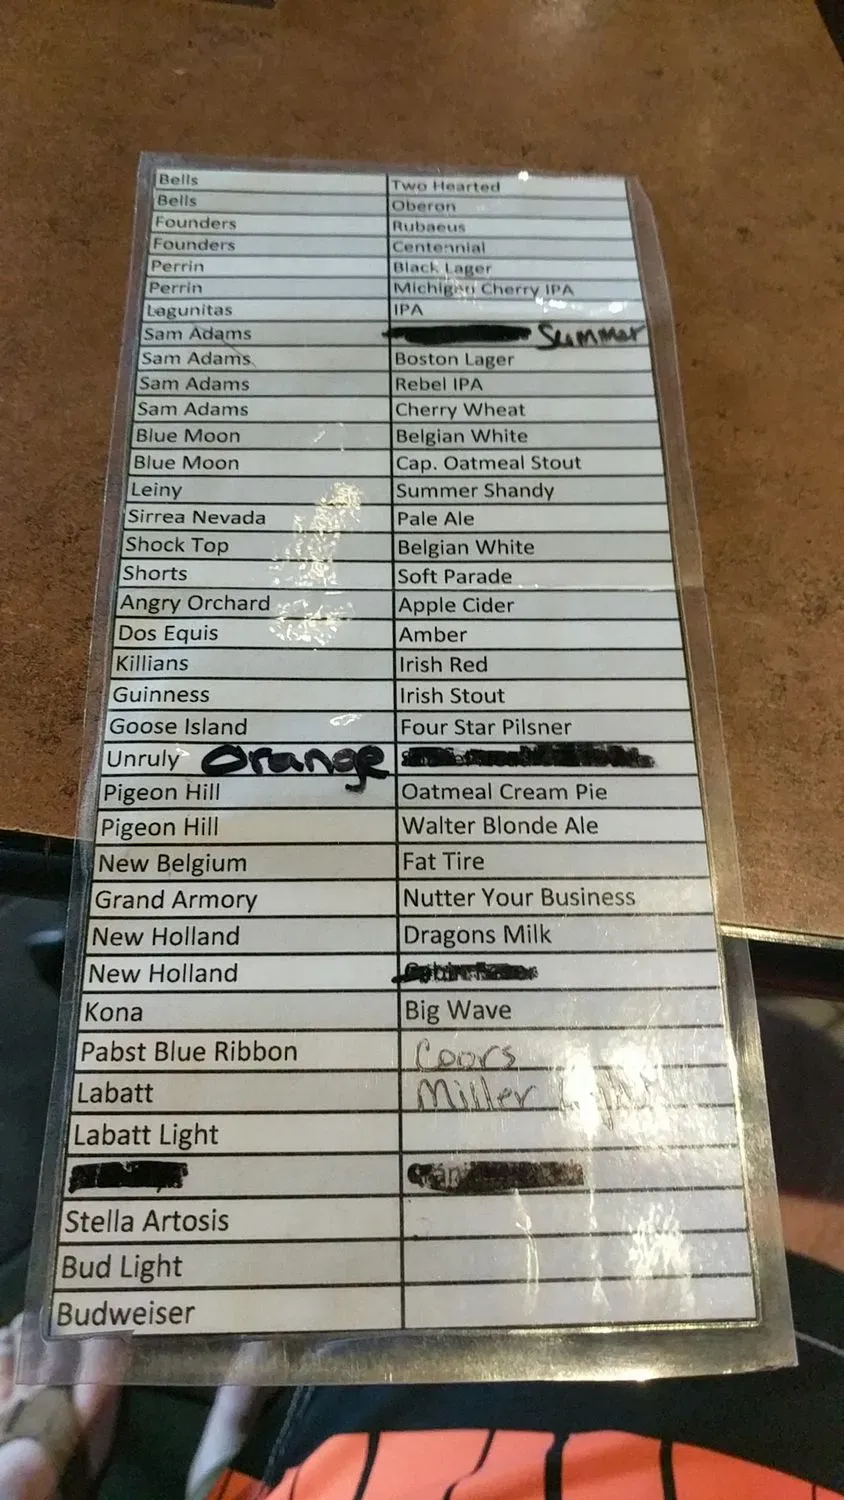 Bells Two Hearted
Bells Oberon
Founders Rubaeus
Founders Centennial
Perrin Black Lager
Perrin Michigan Cherry IPA
Lagunitas IPA
Sam Adams Summer
Sam Adams Boston Lager
Sam Adams Rebel IPA
Sam Adams Cherry Wheat
Blue Moon Belgian White
Blue Moon Cap. Oatmeal Stout
Leiny Summer Shandy
Sirrea Nevada Pale Ale
Shock Top Belgian White
Shorts Soft Parade
Angry Orchard Apple Cider
Dos Equis Amber
Killians Irish Red
Guinness Irish Stout
Goose Island Four Star Pilsner
Unruly Orange
Pigeon Hill Oatmeal Cream Pie
Pigeon Hill Walter Blonde Ale
New Belgium Fat Tire
Grand Armory Nutter Your Business
New Holland Dragons Milk
New Holland
Kona Big Wave
Pabst Blue Ribbon Coors
Labatt Miller
Labatt Light
Stella Artosis
Bud Light
Budweiser